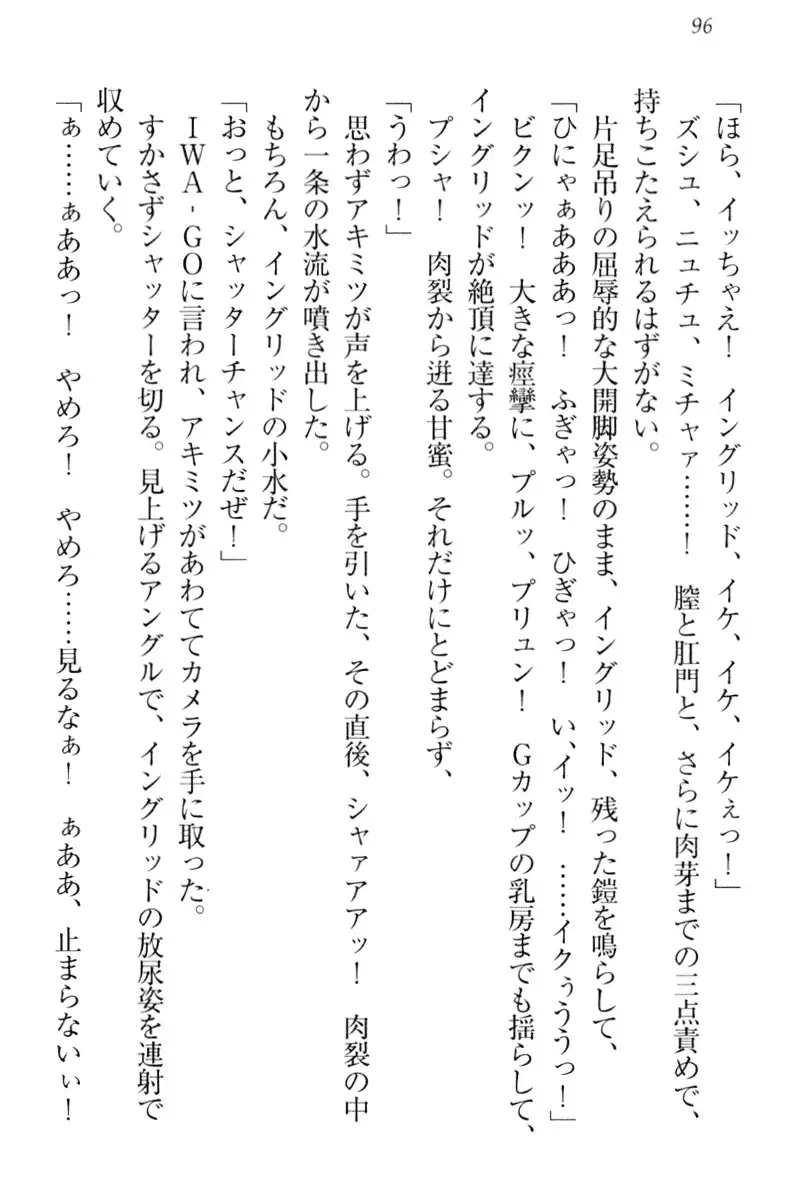 96
「ほら、イッちゃえ！　イングリッド、イケ、イケ、イケぇっ！」
ズシュ、ニュチュ、ミチャァ……！　膣と肛門と、さらに肉芽までの三点責めで、
持ちこたえられるはずがない。
片足吊りの屈辱的な大開脚姿勢のまま、イングリッド、残った鎧を鳴らして、
「ひにゃぁあああっ！　ふぎゃっ！　ひぎゃっ！　い、イッ！　……イクぅううっ！」
ビクンッ！　大きな痙攣に、プルッ、プリュン！　Gカップの乳房までも揺らして、
イングリッドが絶頂に達する。
プシャ！　肉裂から迸る甘蜜。それだけにとどまらず、
「うわっ！」
思わずアキミツが声を上げる。手を引いた、その直後、シャァアアッ！　肉裂の中
から一条の水流が噴き出した。
もちろん、イングリッドの小水だ。
「おっと、シャッターチャンスだぜ！」
IWA‐GOに言われ、アキミツがあわててカメラを手に取った。
すかさずシャッターを切る。見上げるアングルで、イングリッドの放尿姿を連射で
収めていく。
「ぁ……ぁああっ！　やめろ！　やめろ……見るなぁ！　ぁああ、止まらないぃ！